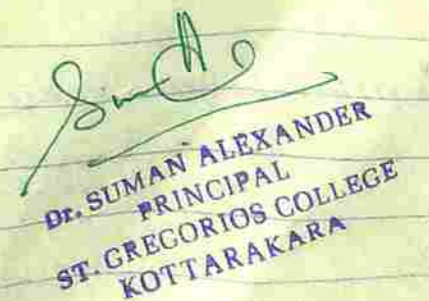 Dr. SUMAN ALEXANDER
PRINCIPAL
ST. GREGORIOS COLLEGE
KOTTARAKARA